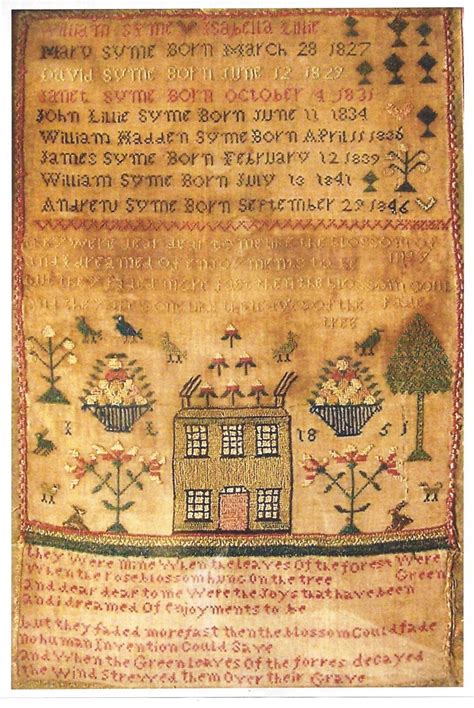 William Syme Isabella Lillie
Mary Syme Born March 28 1827
David Syme Born June 12 1829
Janet Syme Born October 4 1831
John Lillie Syme Born June 11 1834
William Hadden Syme Born April 11 1836
James Syme Born February 12 1839
William Syme Born July 13 1841
Andrew Syme Born September 29 1846
were dear dear to me
and i dreamed of
but they faded more fast blossom could
of the fade
tree
18 51
they Were mine When the leaves Of the forest Were
When the rose blossom hung On the tree Green
And dear dear to me Were the Joys that have been
And i dreamed Of Enjoyments to be
but they faded more fast then the blossom Could fade
no human Invention Could Save
and When the Green leaves Of the forres decayed
the Wind Strewed them Over their Grave